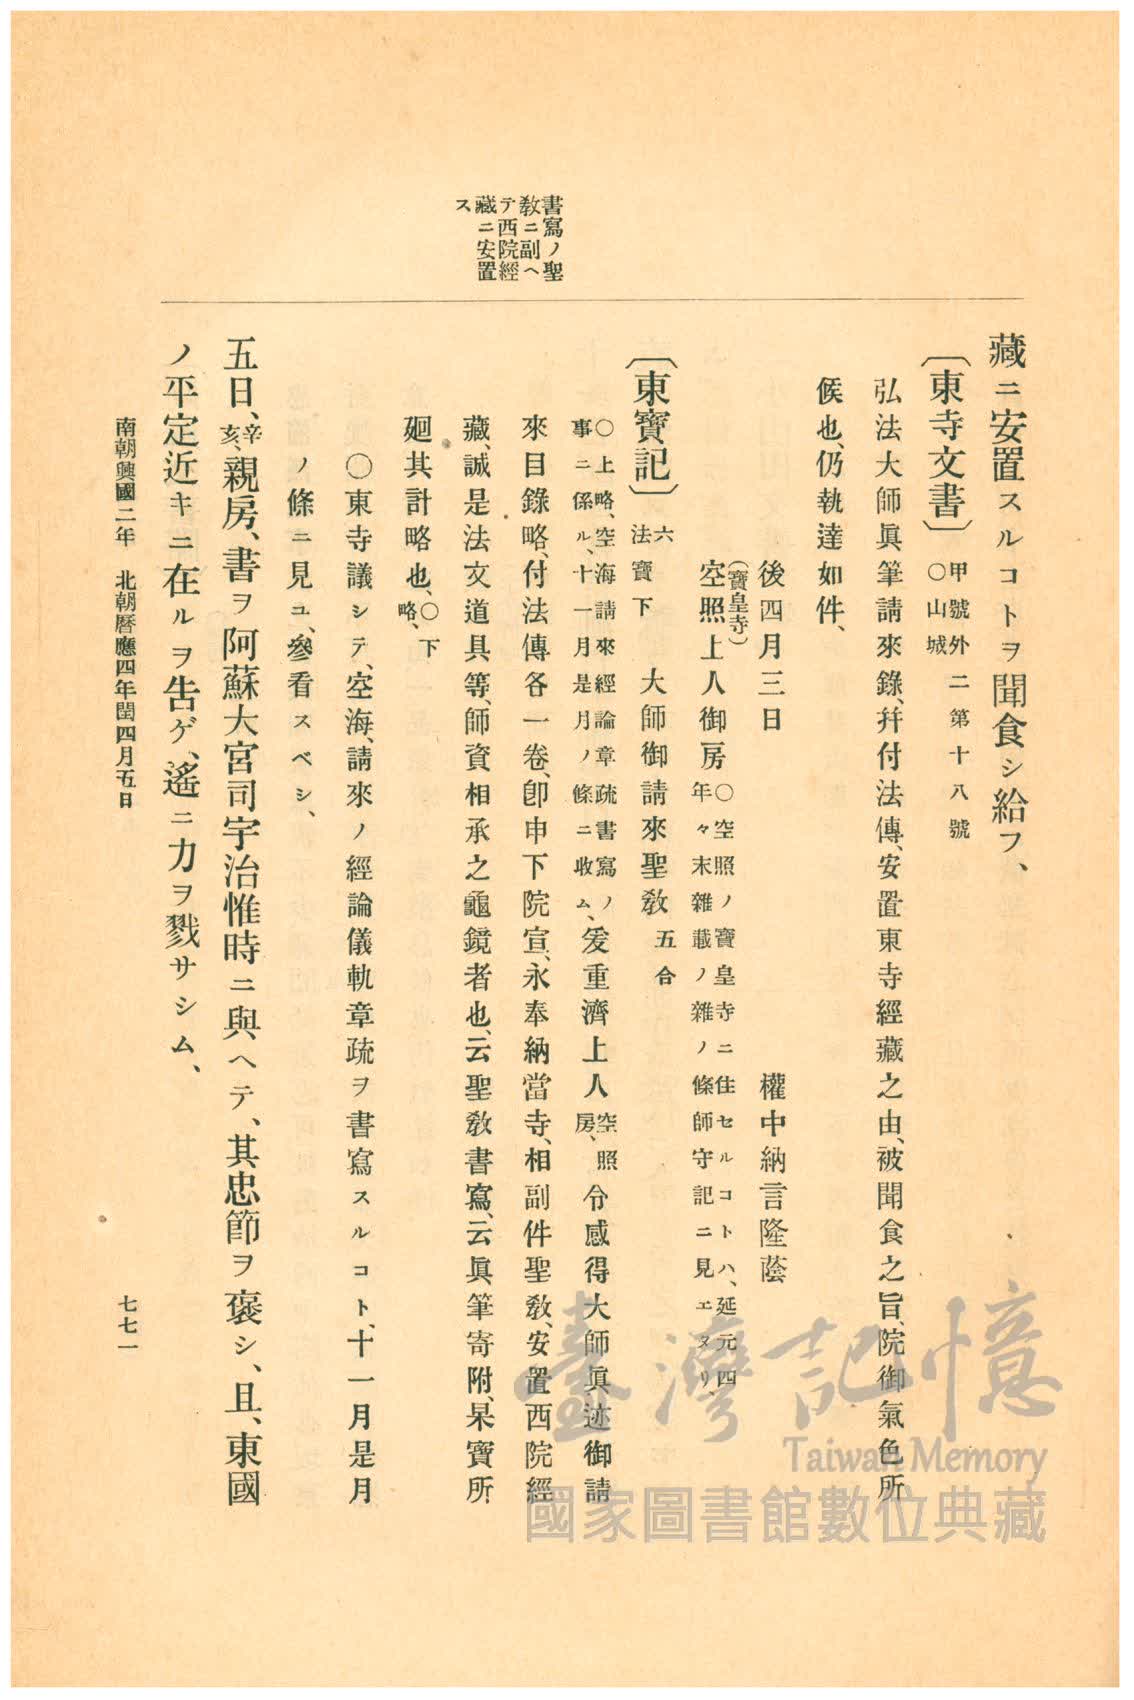 書寫ノ聖
教ニ副ヘ
テ西院經
藏ニ安置
ス
藏ニ安置スルコトヲ聞食シ給フ、
〔東寺文書〕甲號外二第十八號
○山城
弘法大師眞筆請來錄、幷付法傳、安置東寺經藏之由、被聞食之旨、院御氣色所
候也、仍執達如件、
後四月三日　權中納言隆蔭
(寶皇寺)
空照上人御房○空照ノ寶皇寺ニ住セルコトハ、延元四
年々末雜載ノ雜ノ條師守記ニ見エタリ、
〔東寶記〕六
法寶下　大師御請來聖敎五合
○上略、空海請來經論章疏書寫ノ
事ニ係ル、十一月是月ノ條ニ收ム、爰重濟上人空照
房、令感得大師眞迹御請
來目錄略、付法傳各一卷、卽申下院宣、永奉納當寺、相副件聖敎、安置西院經
藏、誠是法文道具等、師資相承之龜鏡者也、云聖敎書寫、云眞筆寄附、杲寶所
廻其計略也、○下
略、
○東寺議シテ、空海、請來ノ經論儀軌章疏ヲ書寫スルコト、十一月是月
ノ條ニ見ユ、參看スベシ、
五日、辛
亥、親房、書ヲ阿蘇大宮司宇治惟時ニ與ヘテ、其忠節ヲ褒シ、且、東國
ノ平定近キニ在ルヲ告ゲ、遙ニ力ヲ戮サシム、
南朝興國二年　北朝曆應四年閏四月五日
七七一
臺灣記憶
Taiwan Memory
國家圖書館數位典藏